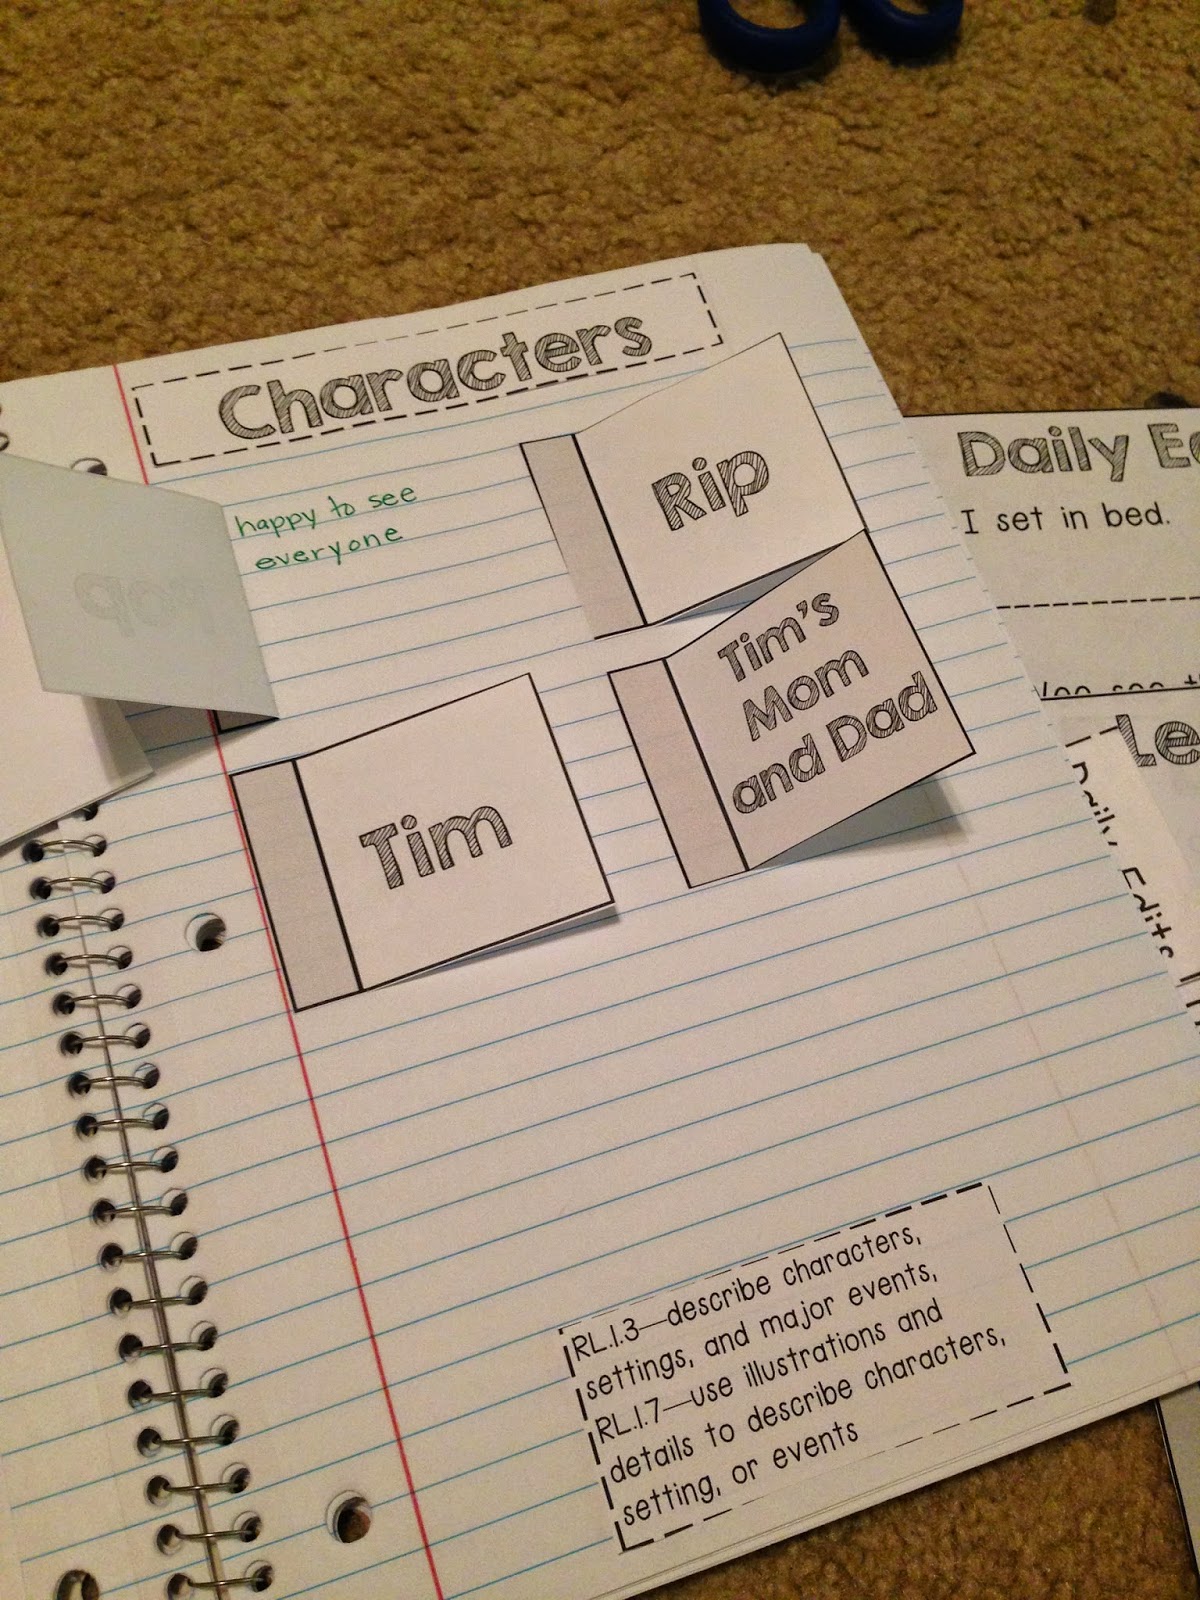 Characters
happy to see
everyone
Rip
Tim
Tim's
Mom
and Dad
RL.1.3—describe characters,
settings, and major events,
RL.1.7—use illustrations and
details to describe characters,
setting, or events
Daily
I set in bed.
You see
Le
Daily Edits